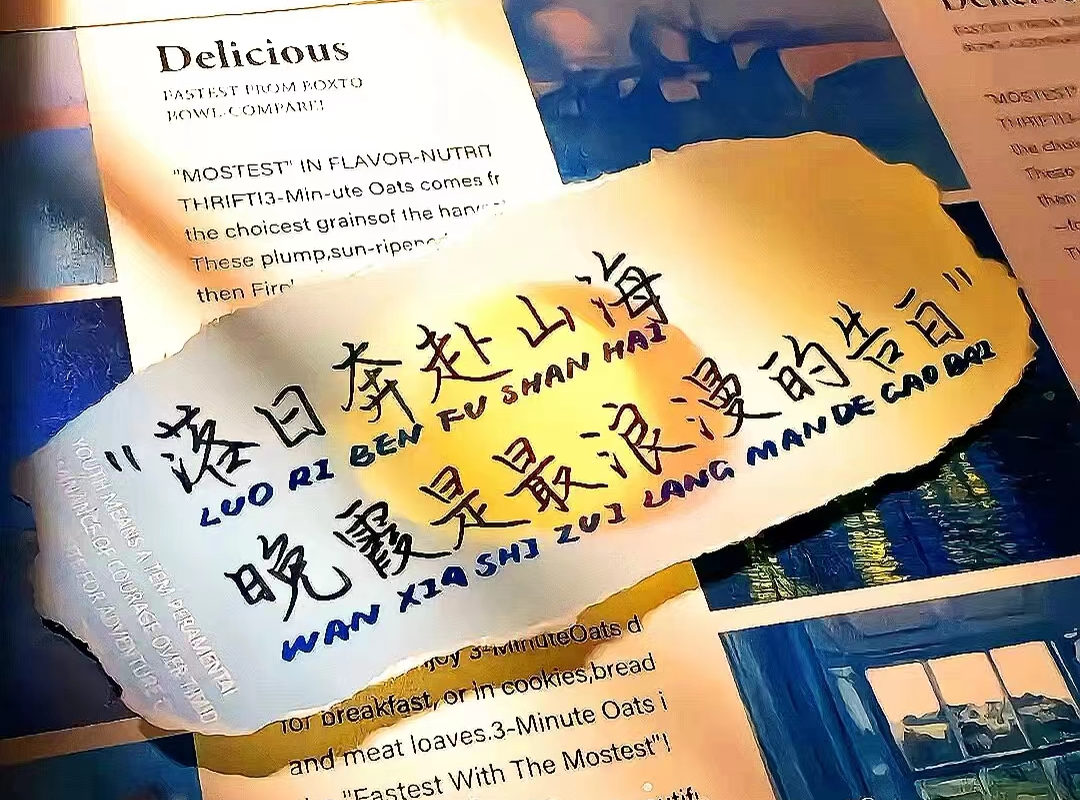 Delicious
FASTEST FROM BOXTO
BOWL-COMPARE!
"MOSTEST" IN FLAVOR-NUTRIT
THRIFTI3-Min-ute Oats comes fr
the choicest grainsof the
These plump,sun-ripened
then
"落日奔赴山海
LUO RI BEN FU SHAN HAI
晚霞是最浪漫的告白"
WAN XIA SHI ZUI LANG MAN DE GAO BAI
YOUTH MEANS A TEM PERAMENTAL
OF COURAGE OVER TIMID
FOR ADVENTURE
3-MinuteOats d
for breakfast, or in cookies,bread
and meat loaves.3-Minute Oats i
"Fastest With The Mostest"!
"MOSTEST"